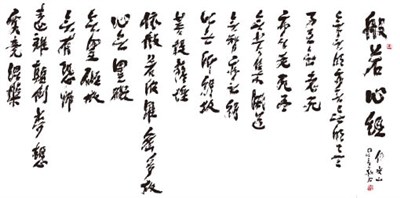 般若心經
無無明亦無無明盡
乃至無老死
亦無老死盡
無苦集滅道
無智亦無得
以無所得故
菩提薩埵
依般若波羅蜜多故
心無罣礙
無罣礙故
無有恐怖
遠離顛倒夢想
究竟涅槃